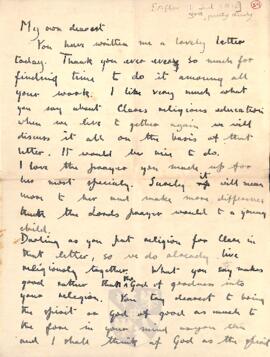 My own dearest
You have written me a lovely letter
today. Thank you ever ever so much for
finding time to do it among all
your work. I like very much what
you say about Clares religious education
when we live to gether again we will
discuss it all on the basis of that
letter. It would be nice to do.
I love the prayer you made up for
her most specially. Surely it will mean
more to her and make more difference
than the Lords prayer would to a young
child.
Darling as you put religion for Clare in
that letter, so we do already live
religiously together. What you say makes
good rather than a God of goodness into
your religion. You try dearest to bring
the spirit as God of good as much to
the fore in your mind as you can
and I shall think of God as the spirit